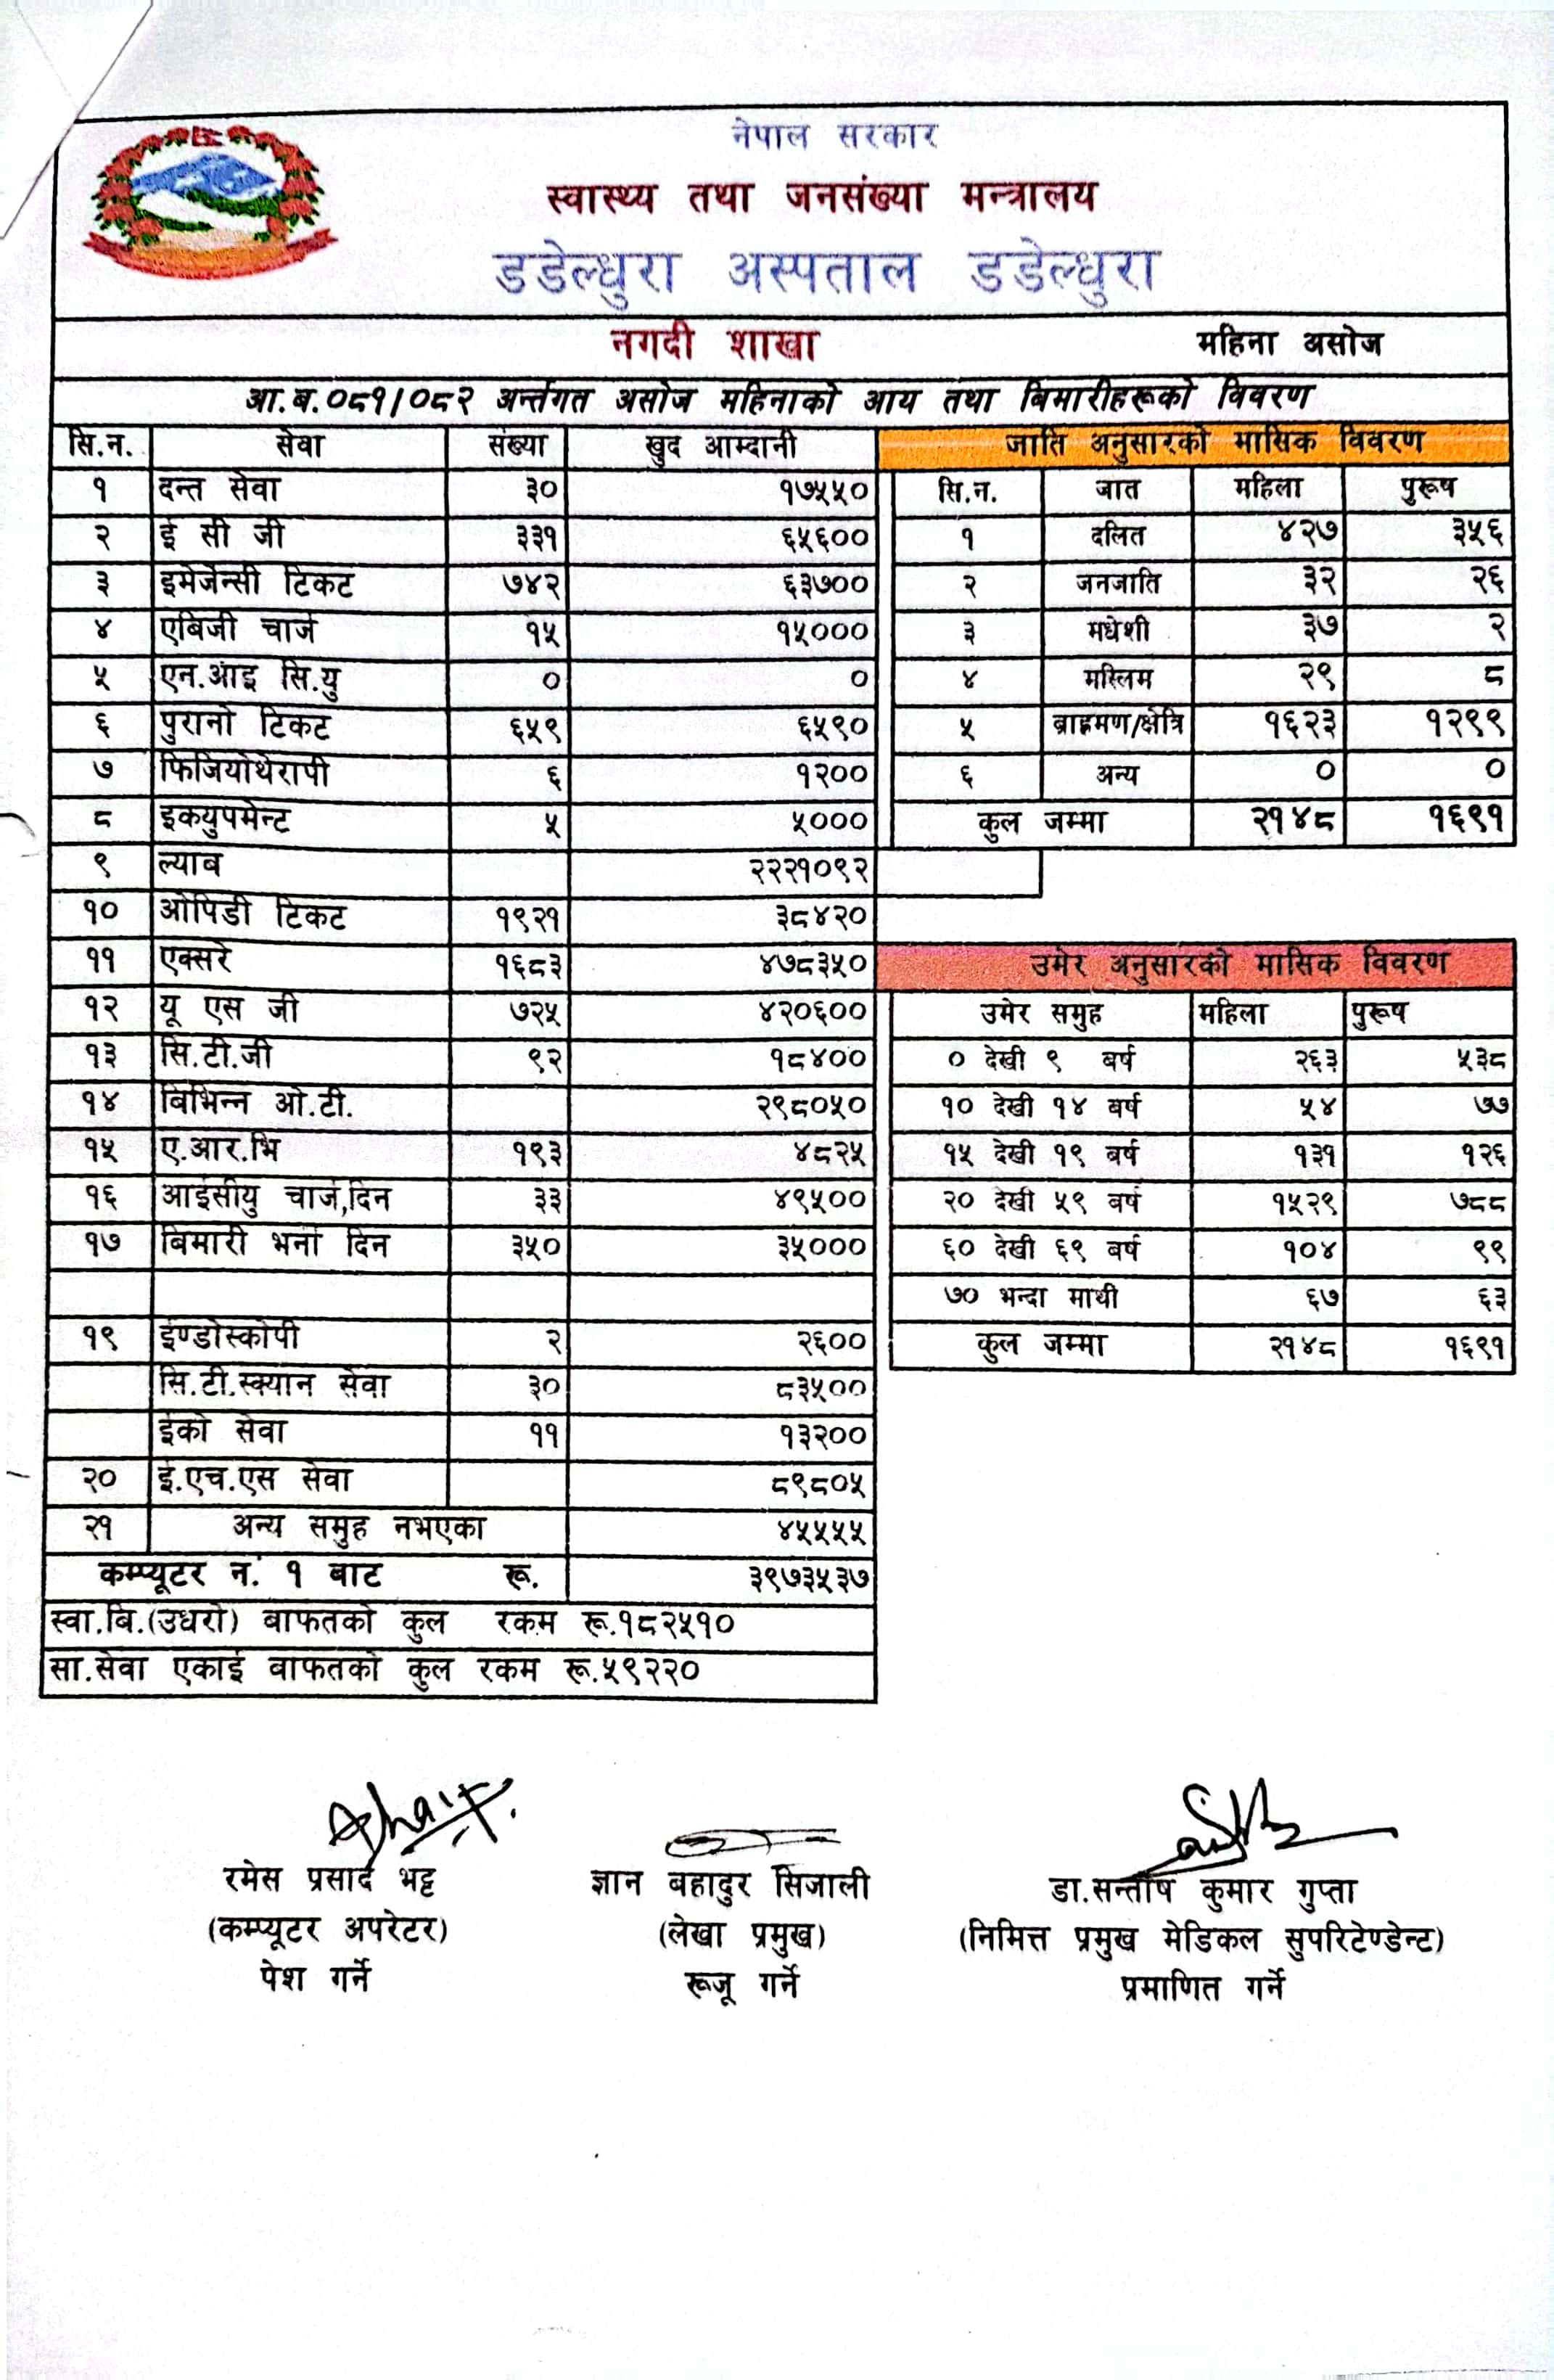 नेपाल सरकार
स्वास्थ्य तथा जनसंख्या मन्त्रालय
डडेल्धुरा अस्पताल डडेल्धुरा
नगदी शाखा महिना असोज
आ.ब.०८१/०८२ अर्न्तगत असोज महिनाको आय तथा बिमारीहरूको विवरण
सि.न. सेवा संख्या खुद आम्दानी
१ दन्त सेवा ३० १७५५०
२ ई सी जी ३३१ ६५६००
३ इमेर्जेन्सी टिकट ७४२ ६३७००
४ एबिजी चार्ज १५ १५०००
५ एन.आइ सि.यु ० ०
६ पुरानो टिकट ६५९ ६५९०
७ फिजियोथेरापी ६ १२००
८ इकयुपमेन्ट ५ ५०००
९ ल्याब २२२१०९२
१० ओपिडी टिकट १९२१ ३८४२०
११ एक्सरे १६८३ ४७८३५०
१२ यू एस जी ७२५ ४२०६००
१३ सि.टी.जी ९२ १८४००
१४ बिभिन्न ओ.टी. २९८०५०
१५ ए.आर.भि १९३ ४८२५
१६ आईसीयु चार्ज,दिन ३३ ४९५००
१७ बिमारी भर्ना दिन ३५० ३५०००
१९ ईण्डोस्कोपी २ २६००
सि.टी.स्क्यान सेवा ३० ८३५००
ईको सेवा ११ १३२००
२० ई.एच.एस सेवा ८९८०५
२१ अन्य समुह नभएका ४५५५५
कम्प्यूटर नं. १ बाट रू. ३९७३५३७
स्वा.बि.(उधरो) बाफतको कुल रकम रू.१८२५१०
सा.सेवा एकाई बाफतको कुल रकम रू.५९२२०
जाति अनुसारको मासिक विवरण
सि.न. जात महिला पुरूष
१ दलित ४२७ ३५६
२ जनजाति ३२ २६
३ मधेशी ३७ २
४ मस्लिम २९ ८
५ ब्राह्मण/क्षेत्रि १६२३ १२९९
६ अन्य ० ०
कुल जम्मा २१४८ १६९१
उमेर अनुसारको मासिक विवरण
उमेर समुह महिला पुरूष
० देखी ९ बर्ष २६३ ५३८
१० देखी १४ बर्ष ५४ ७७
१५ देखी १९ बर्ष १३१ १२६
२० देखी ५९ बर्ष १५२९ ७८८
६० देखी ६९ बर्ष १०४ ९९
७० भन्दा माथी ६७ ६३
कुल जम्मा २१४८ १६९१
रमेस प्रसाद भट्ट ज्ञान बहादुर सिजाली डा.सन्तोष कुमार गुप्ता
(कम्प्यूटर अपरेटर) (लेखा प्रमुख) (निमित्त प्रमुख मेडिकल सुपरिटेण्डेन्ट)
पेश गर्ने रूजू गर्ने प्रमाणित गर्ने